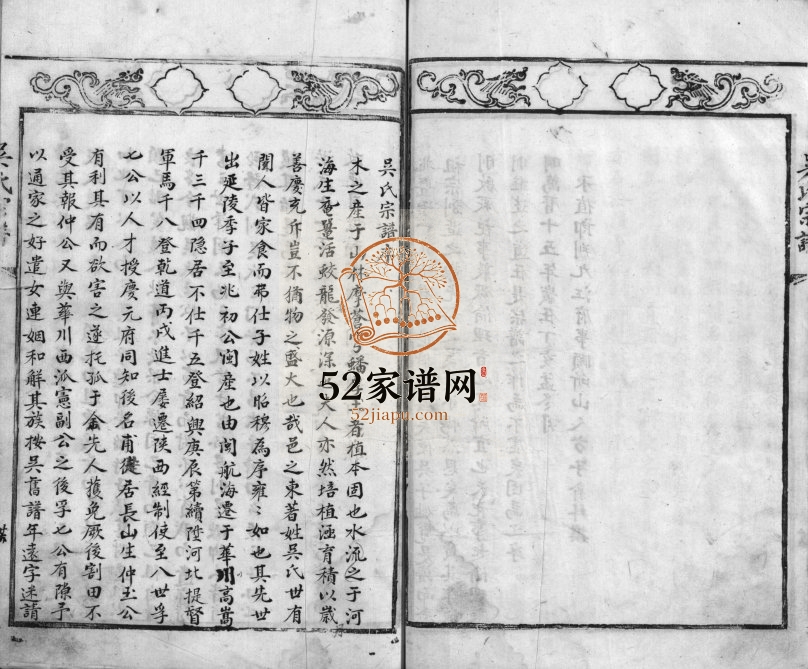 吳氏宗譜
吳氏宗譜
木之産于山林 者植本固也水流之于河
海生黿鼉活蛟龍發源深 夫人亦然培植涵育積以歲月
善慶充斥豈不猶物之盛大也哉邑之東著姓吳氏世有
聞人皆家食而弗仕子姓以昭穆為序雍〻如也其先世
出延陵季子至兆初公閩産也由閩航海遷于華川高嵩
千三千四隐居不仕千五登紹興庚辰第續陞河北提督
軍馬千八登乾道丙戌進士屡遷陝西經制使至八世孚
七公以人才授慶元府同知後名甫從居長山生仲玉公
有利其有而欲害之遂托孤于金先人獲免厥後割田不
受其報仲公又與華川西派憲副公之後孚七公有隙予
以通家之好遣女連姻和解其族按吳舊譜年遠字迷請
吳氏宗譜
52家谱网
52jiapu.com